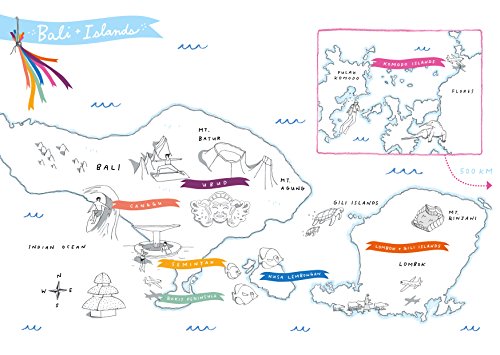 Bali + Islands
KOMODO ISLANDS
PULAU
KOMODO
FLORES
500 KM
MT.
BATUR
BALI
UBUD
MT.
AGUNG
CANGGU
GILI ISLANDS
MT.
RINJANI
INDIAN OCEAN
LOMBOK + GILI ISLANDS
SEMINYAK
LOMBOK
NUSA LEMBONGAN
BUKIT PENINSULA
N
W
E
S